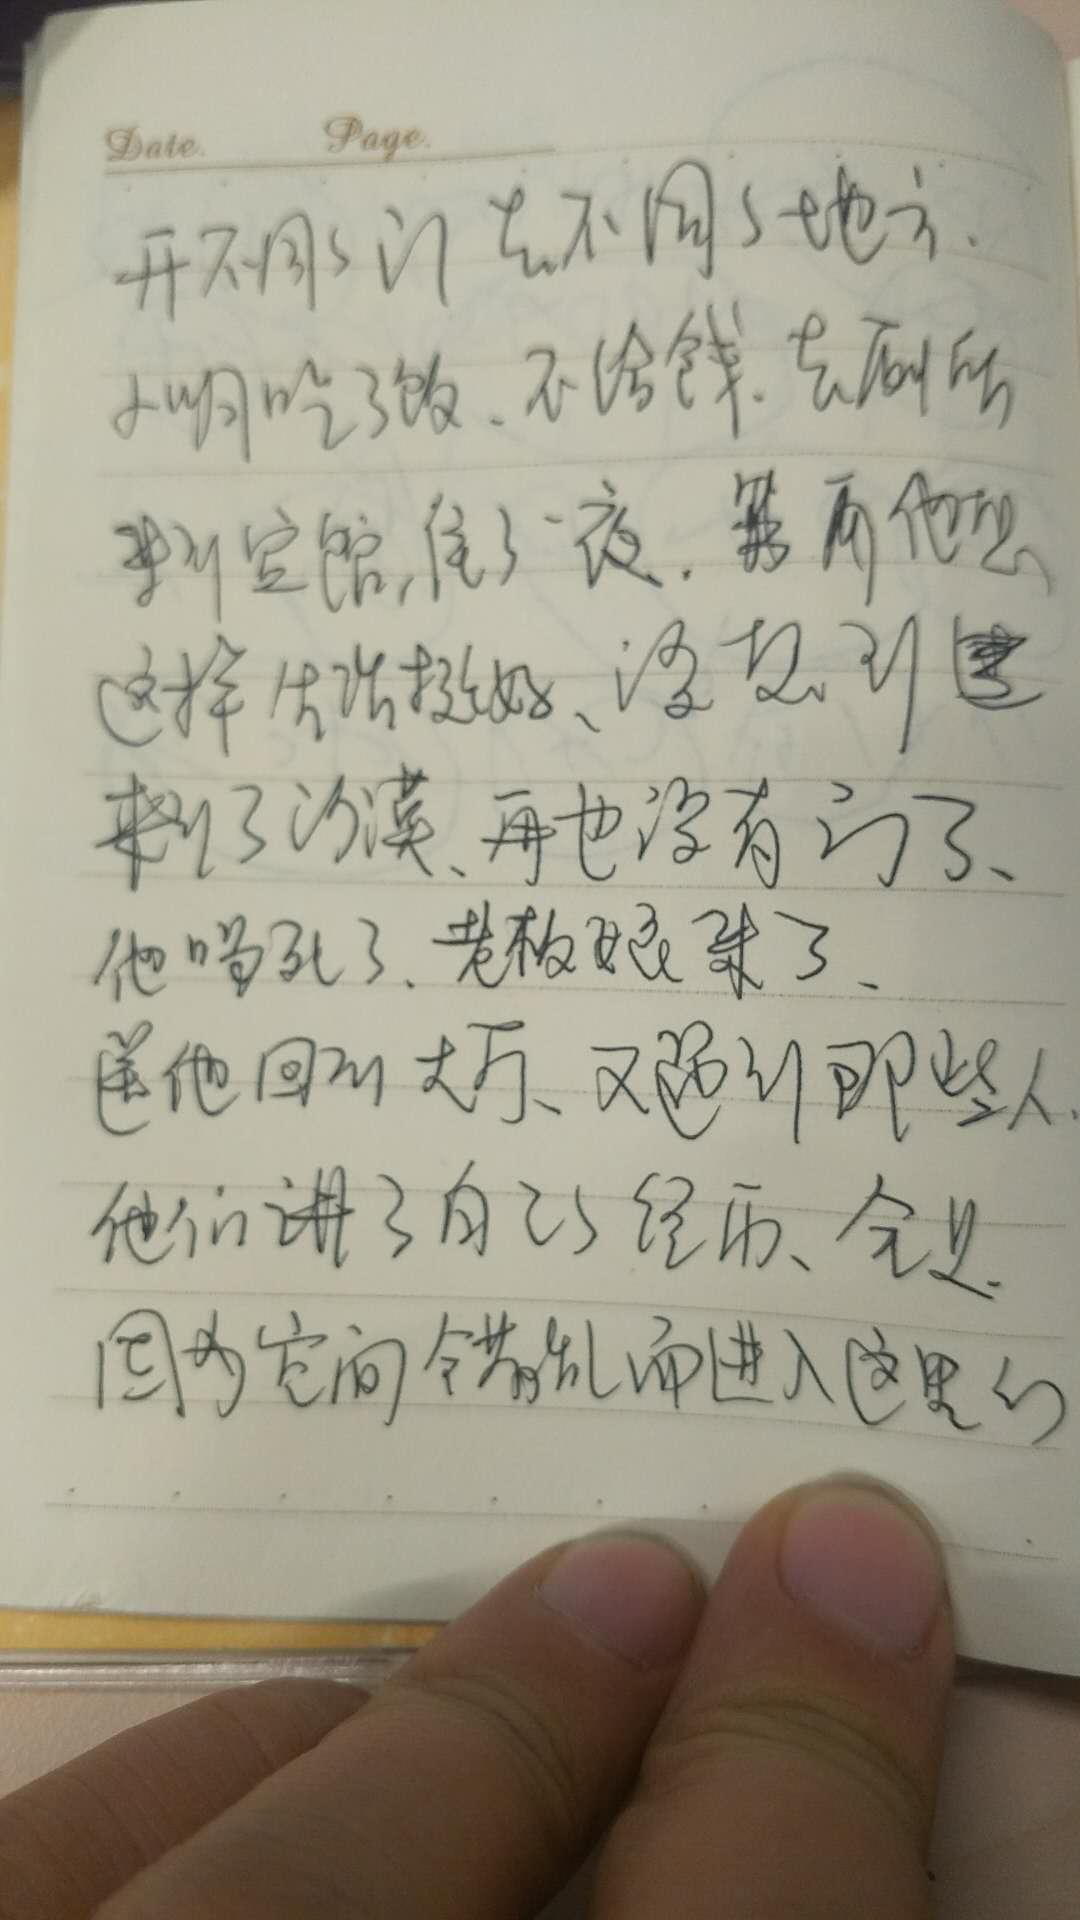 Date. Page.
开不同的门 去不同的地方.
小明吃了饭、不给钱.去厕所
来到宾馆,住了一夜. 后他想
这样生活挺好、没想到
来到了沙漠、再也没有门了、
他渴死了、老板娘来了、
送他回到大厅、又遇到那些人.
他们讲了自己的经历、全是
因为空间错乱而进入这里的